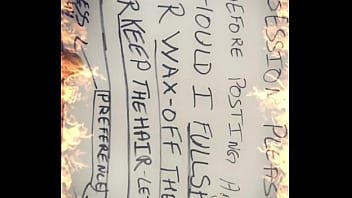 SESSION PLEAS
EFORE POSTING A
HOULD I FULLSH
R WAX-OFF THE
R KEEP THE HAIR-LE
PREFERENCE